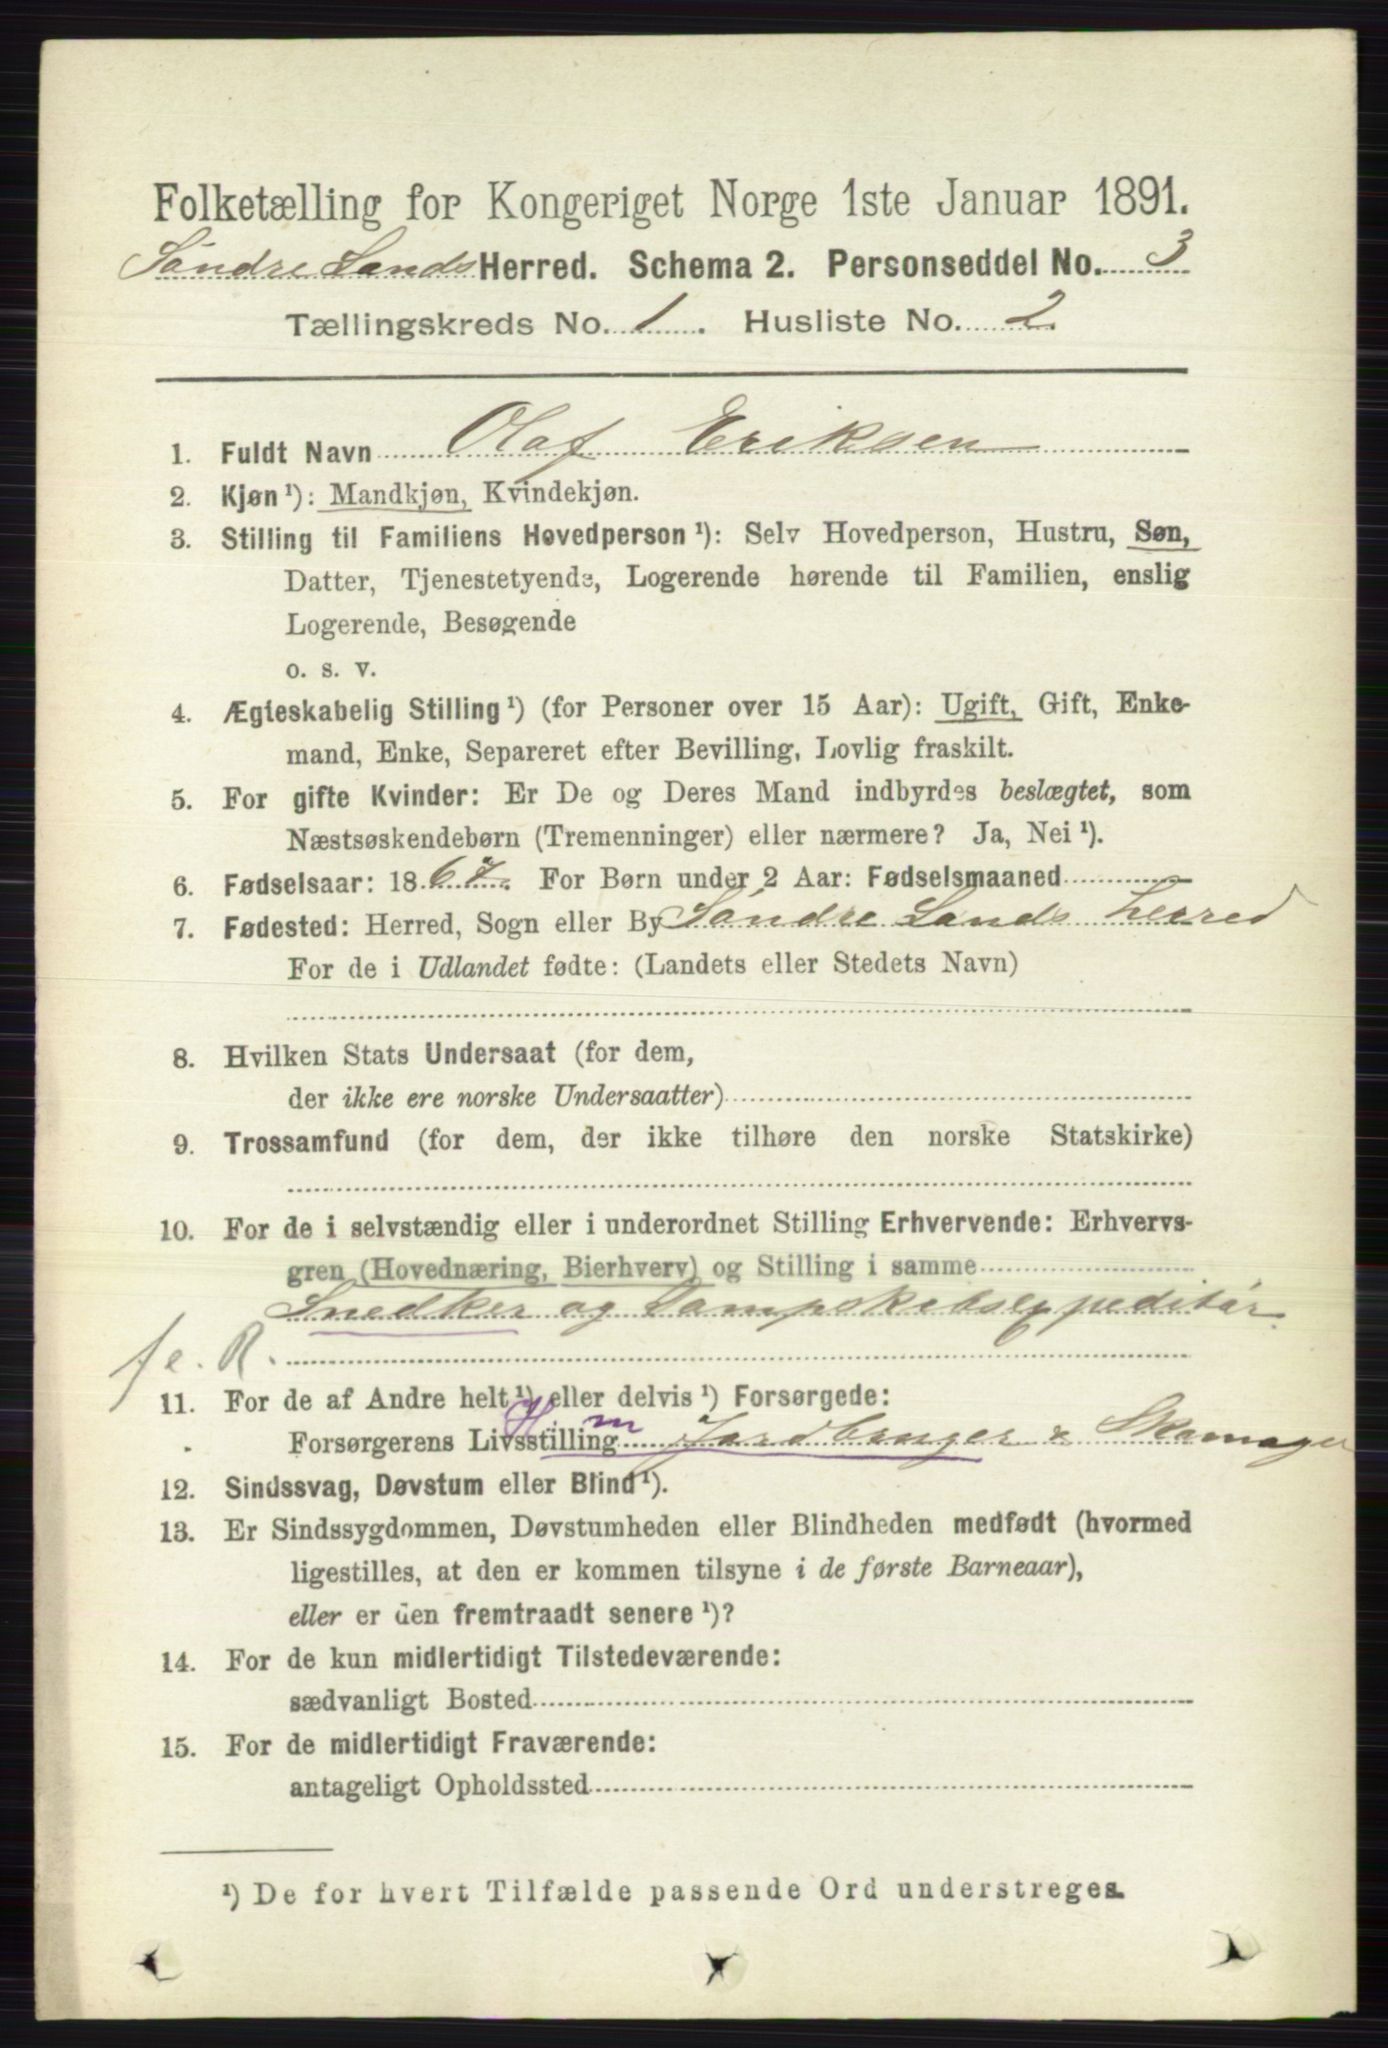 Folketælling for Kongeriget Norge 1ste Januar 1891.
Söndre Lands Herred. Schema 2. Personseddel No. 3
Tællingskreds No. 1. Husliste No. 2
1. Fuldt Navn Olaf Eriksen
2. Kjøn ¹): Mandkjøn, Kvindekjøn.
3. Stilling til Familiens Hovedperson ¹): Selv Hovedperson, Hustru, Søn,
Datter, Tjenestetyende, Logerende hørende til Familien, enslig
Logerende, Besøgende
o. s. v.
4. Ægteskabelig Stilling ¹) (for Personer over 15 Aar): Ugift, Gift, Enke-
mand, Enke, Separeret efter Bevilling, Lovlig fraskilt.
5. For gifte Kvinder: Er De og Deres Mand indbyrdes beslægtet, som
Næstsøskendebørn (Tremenninger) eller nærmere? Ja, Nei ¹).
6. Fødselsaar: 1867. For Børn under 2 Aar: Fødselsmaaned
7. Fødested: Herred, Sogn eller By Söndre Lands herred
For de i Udlandet fødte: (Landets eller Stedets Navn)
8. Hvilken Stats Undersaat (for dem,
der ikke ere norske Undersaatter)
9. Trossamfund (for dem, der ikke tilhøre den norske Statskirke)
10. For de i selvstændig eller i underordnet Stilling Erhvervende: Erhvervs-
gren (Hovednæring, Bierhverv) og Stilling i samme
Snedker og Dampskibsexpeditör.
fe. R.
11. For de af Andre helt ¹) eller delvis ¹) Forsørgede:
H m
Forsørgerens Livsstilling Jordbruger & Skomager
12. Sindssvag, Døvstum eller Blind ¹).
13. Er Sindssygdommen, Døvstumheden eller Blindheden medfødt (hvormed
ligestilles, at den er kommen tilsyne i de første Barneaar),
eller er den fremtraadt senere ¹)?
14. For de kun midlertidigt Tilstedeværende:
sædvanligt Bosted
15. For de midlertidigt Fraværende:
antageligt Opholdssted
¹) De for hvert Tilfælde passende Ord understreges.